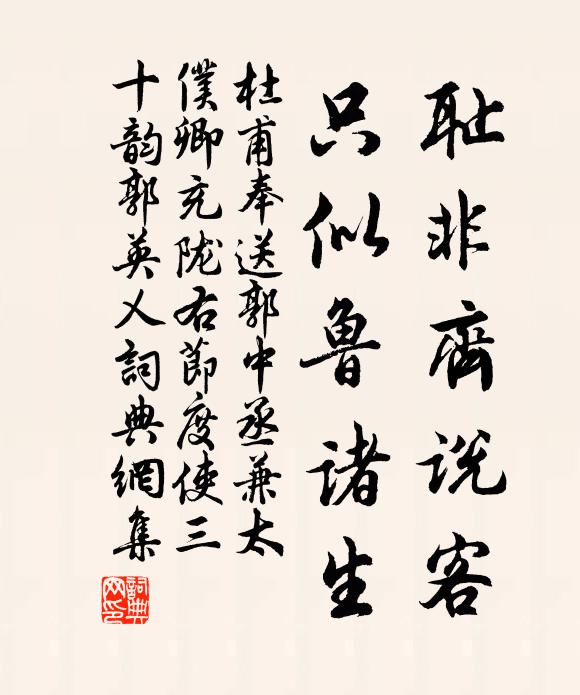 耻非齊说客
只似魯诸生
杜甫奉送郭中丞兼太
僕卿充陇右節度使三
十韵郭英乂詞典網集
詞典
网印